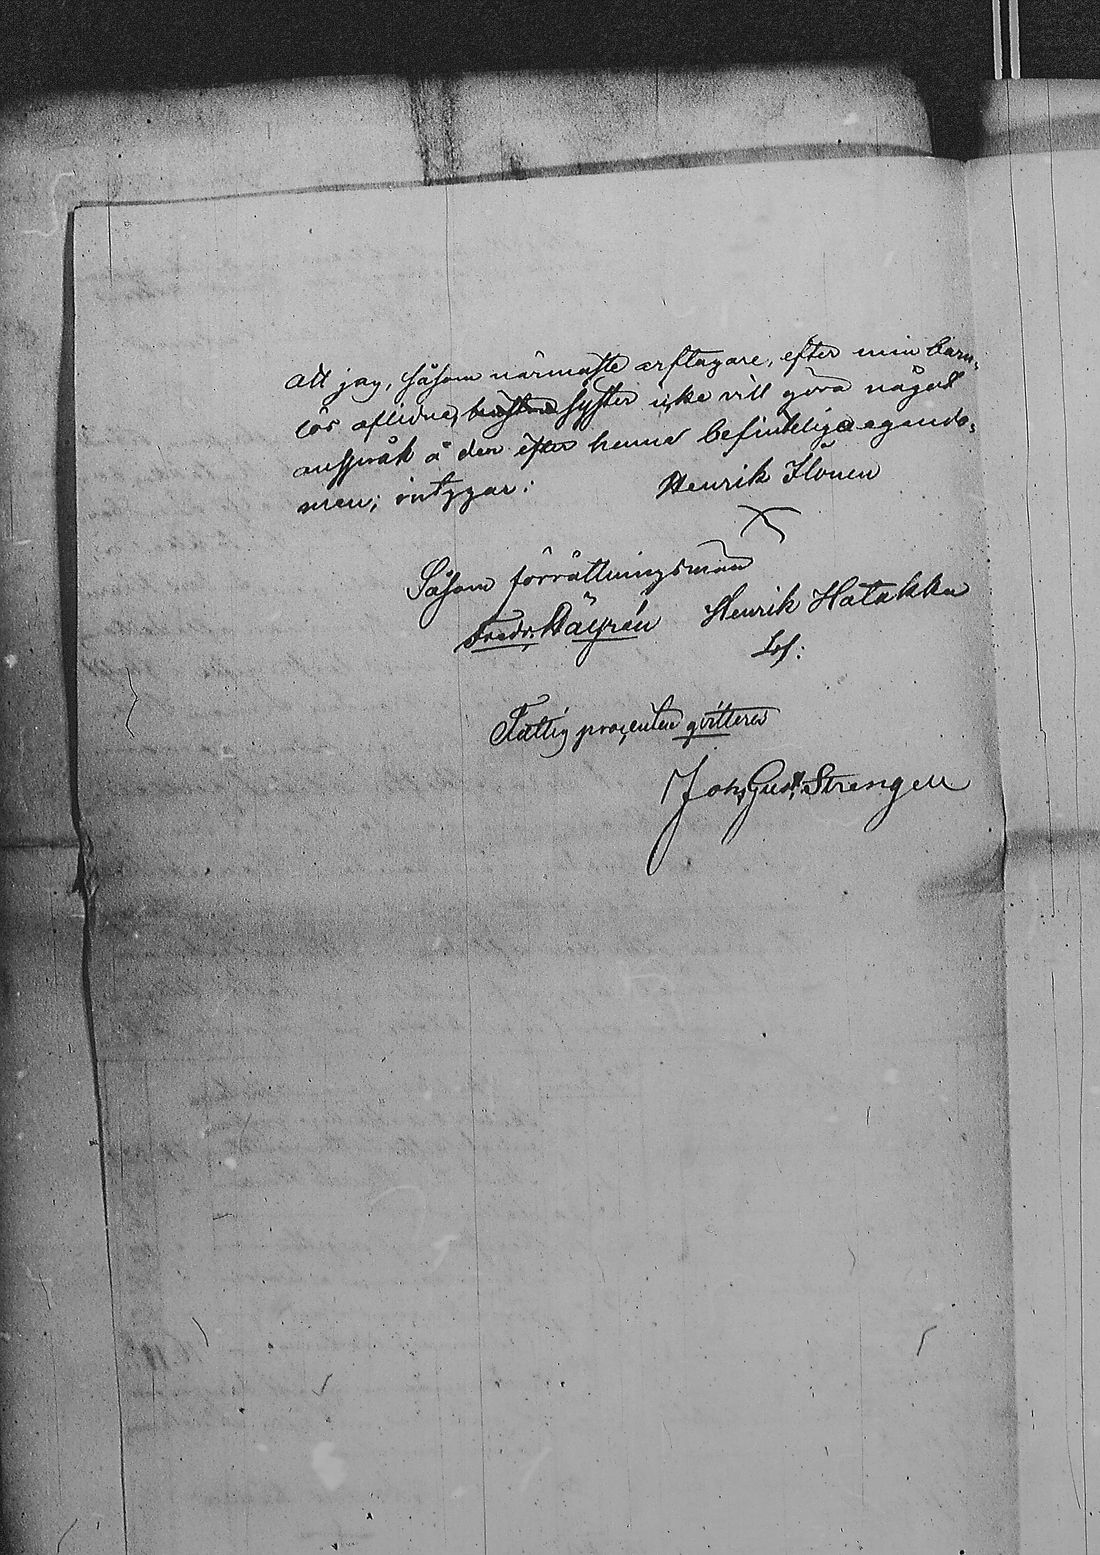 att jag, såsom närmaste arftagare, efter min barn-
lös aflidne, syster icke vill göra något
anspråk å den efter henne befintliga egendo-
men; intygar:
Henrik Ilonen
X
Såsom förrättningsmän
Fredr. Däyrén Henrik Hatakka
Lof:
Fattig procenten qvitteras
Joh, Gust. Strengell